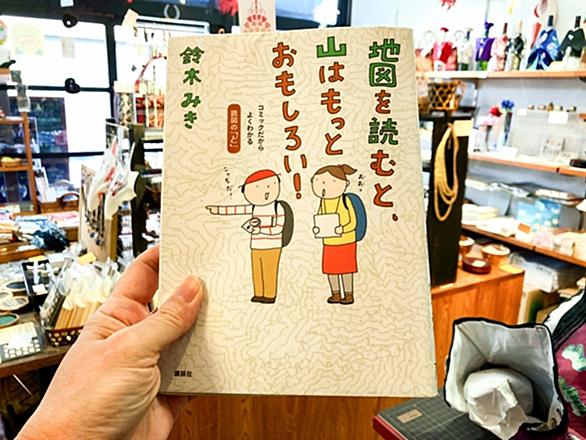 地図を読むと、
山はもっと
おもしろい!
コミックだから
よくわかる
読図の「ど」
鈴木みき
こっちだ!
おお〜
講談社